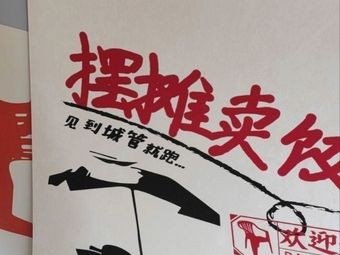 摆摊卖饭
见到城管就跑...
欢迎